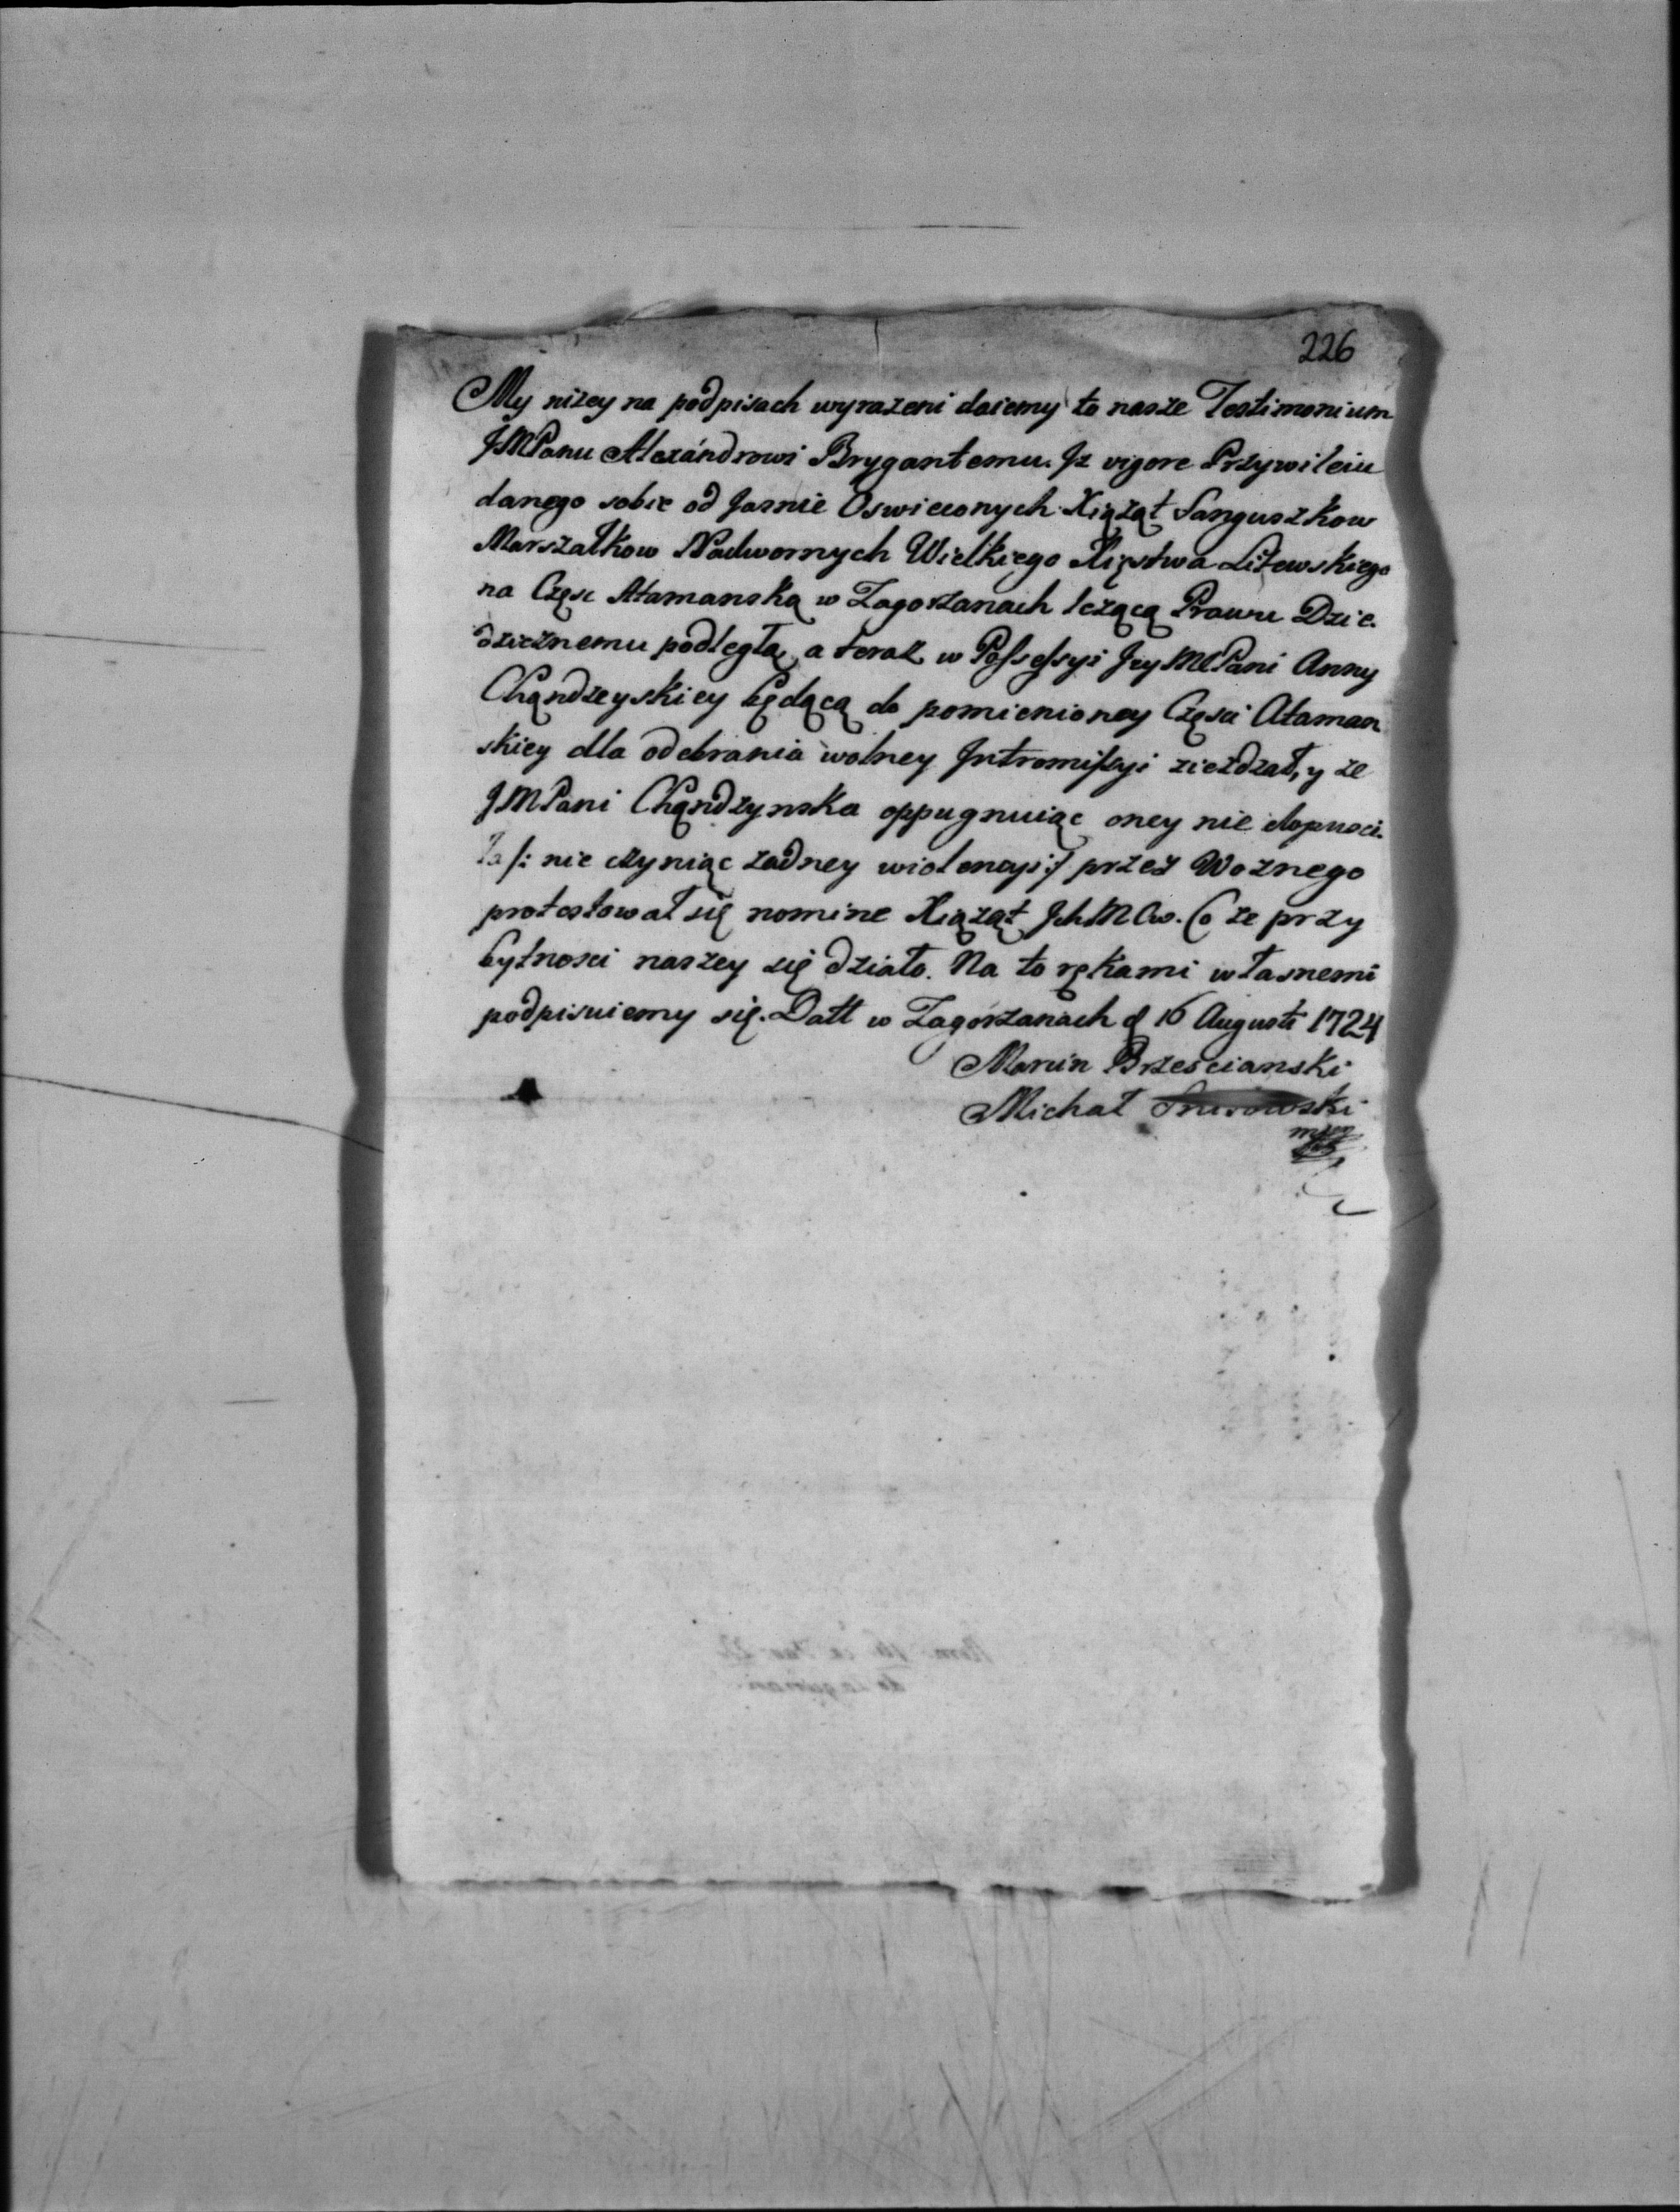 226
My nizey na podpisach wyrazeni daiemy to nasze Testimonium
JMPanu Alexándrowi Brygantemu. Jz vigore Przywileiu
danego sobie od Jasnie Oswieconych Xiążąt Sanguszkow
Marszałkow Nadwornych Wielkiego Xięstwa Litewskiego
na Częsc Atamanską w Zagorzanach leżącą Prawu Dzie-
dzicznemu podległą, a teraz w Possessyi Jey MCPani Anny
Chądzeyskiey będącą do pomienioney Częsci Ataman
skiey dla odebrania wolney Jntromissyi ziezdzał, y ze
JMPani Chądzynska oppugnuiąc oney nie dopusci-
ła /: nie czyniąc zadney wiolencyi :/ przez Woznego
protestował się nomine Xiążąt JchMCw. Co ze przy
bytnosci naszey się działo. Na to rękami własnemi
podpisuiemy się. Datt w Zagórzanach d 16 Augusti 1724
Marcin Brzescianski
Michał